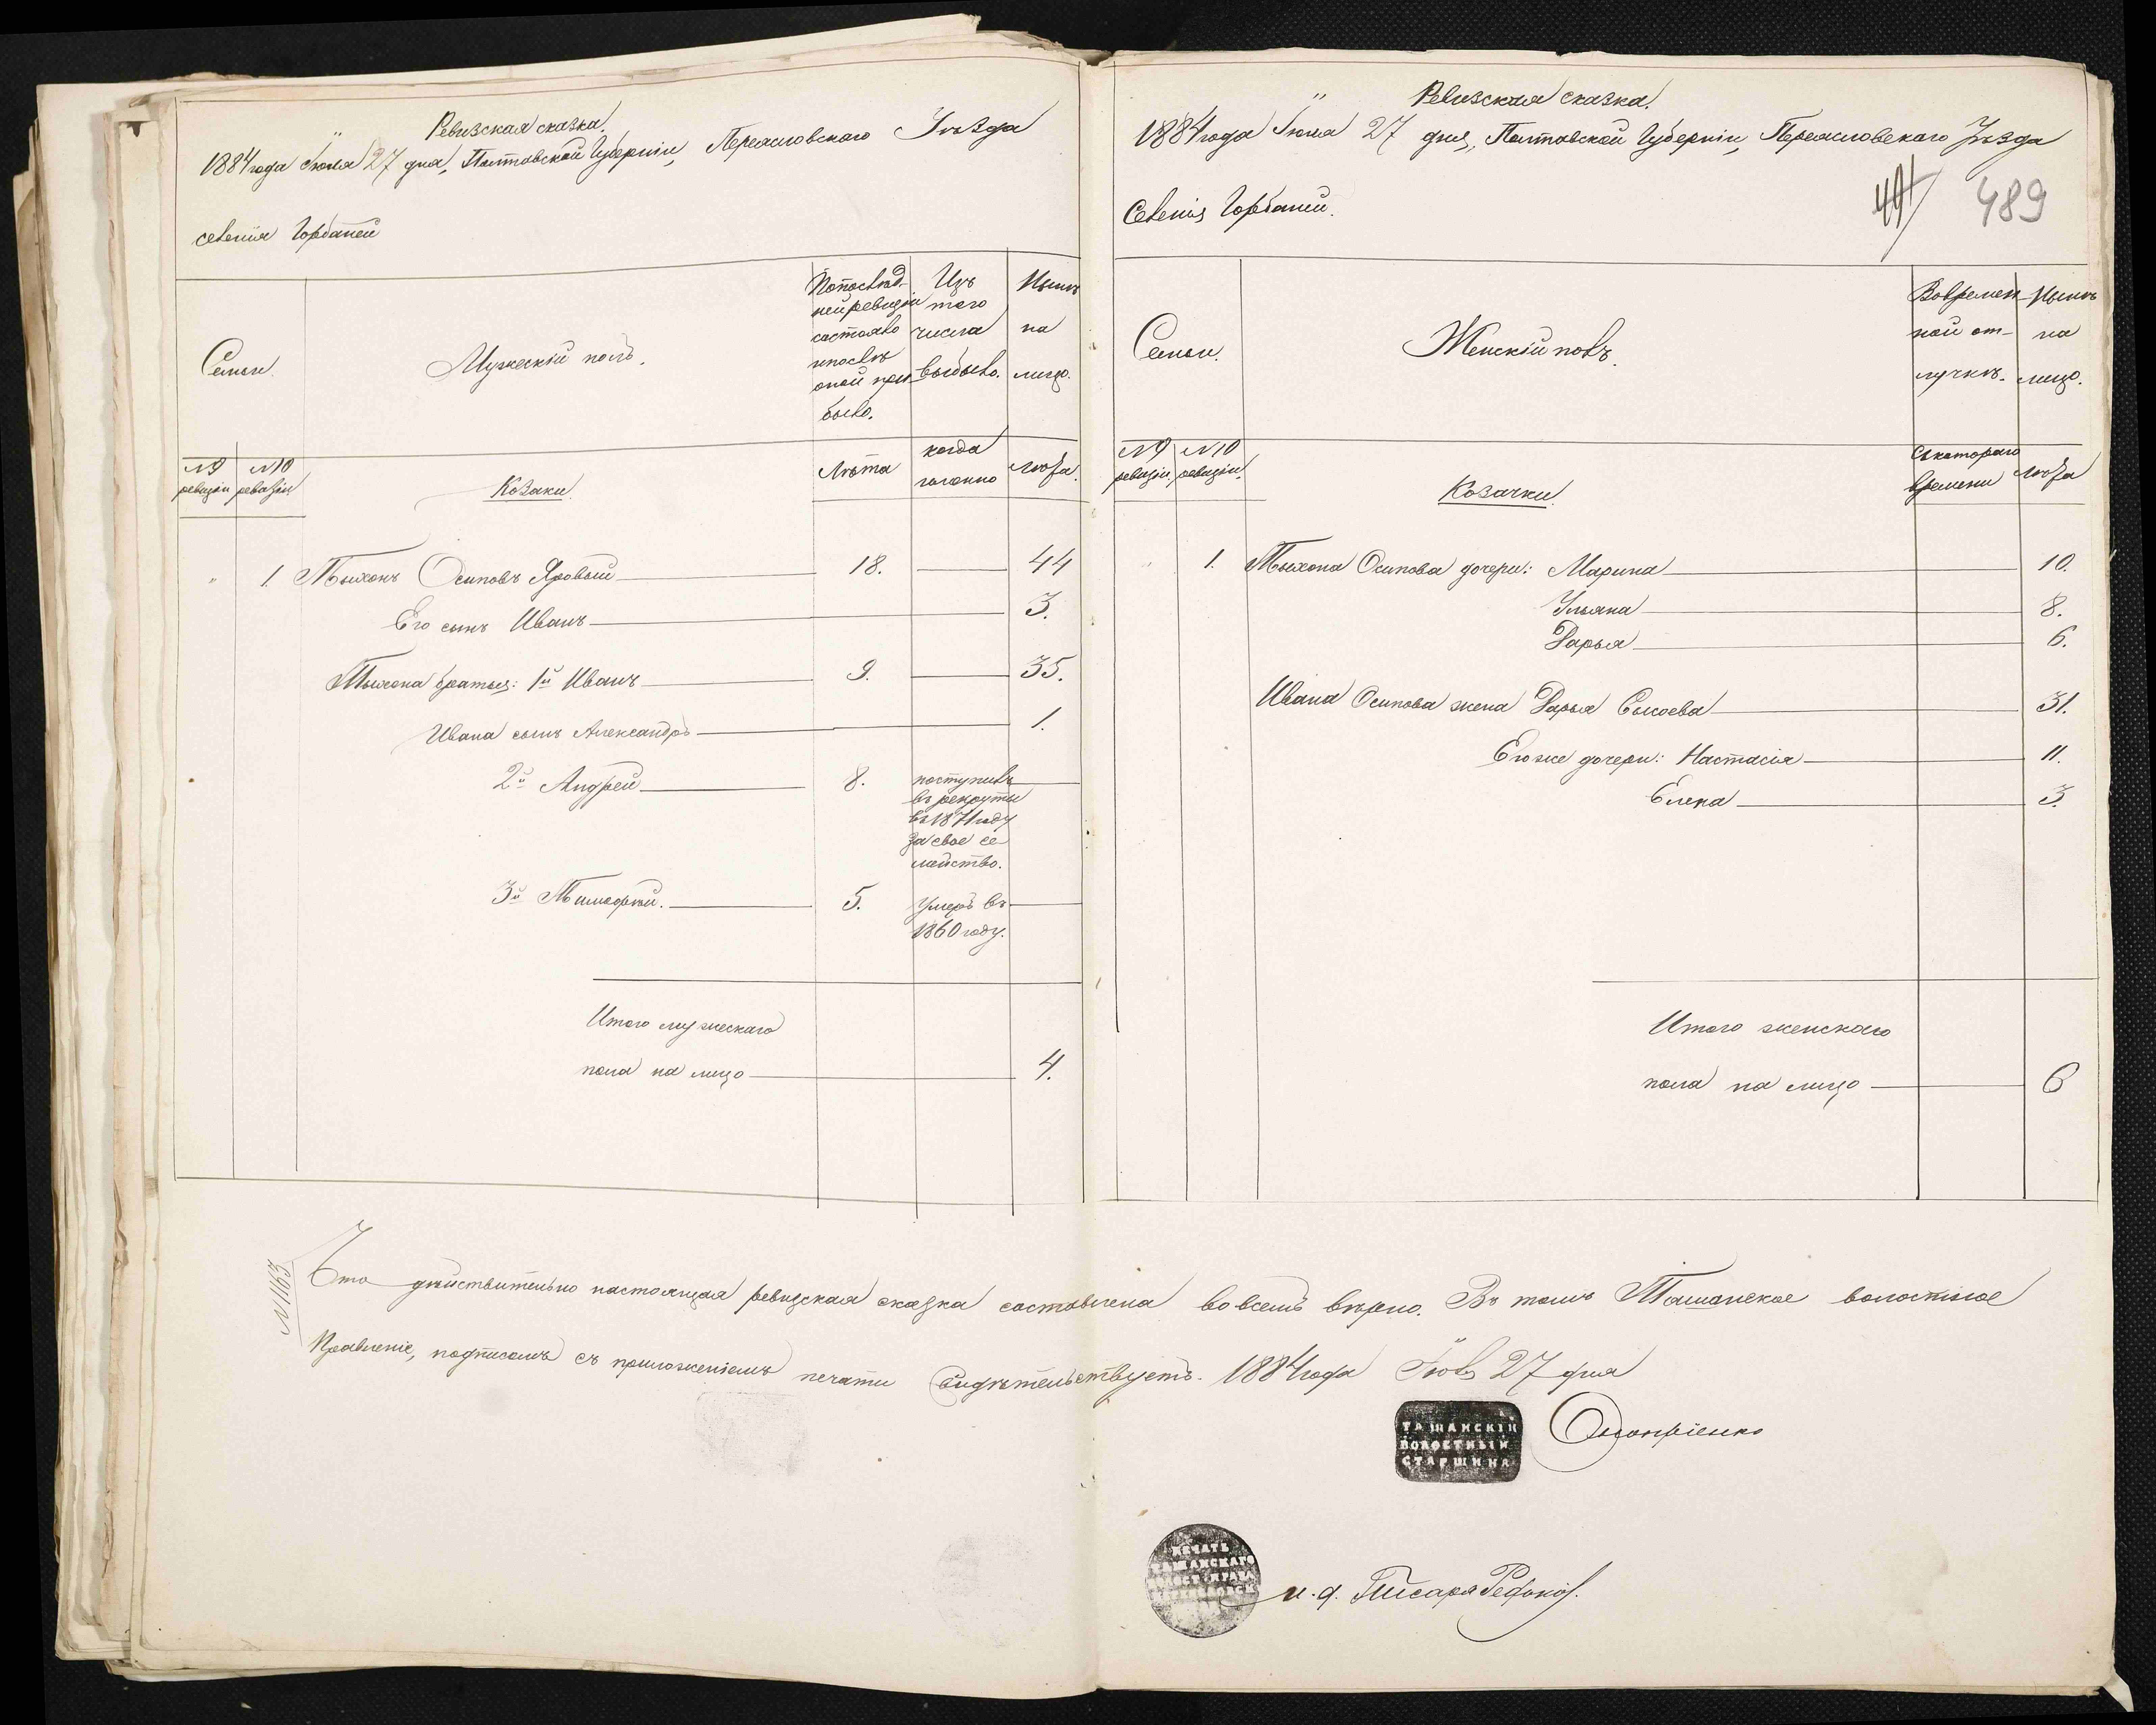 Ревизская сказка.
1884 года Іюля 27 дня, Полтавской Губерніи, Переясловского Уѣзда
селенія Горбаней
Семьи.
Мужескій полъ.
По послѣд-
ней ревизіи
состояло
и послѣ
оной при
было.
Изъ
того
числа
выбыло.
Нынѣ
на
лицо.
№9 ревизіи
№10 ревизіи
Козаки.
Лѣта
когда
имянно
Лѣта.
" 1. Тыхонъ Осиповъ Яровый 18. 44
Его сынъ Иванъ 3.
Тыхона братья: 1й Иванъ 9. 35.
Ивана сынъ Александръ 1.
2й Андрей 8. поступилъ
въ рекруты
въ 1871 году
за свое се
мейство.
3й Тимофей. 5. Умеръ въ
1860 году.
Итого мужескаго
пола на лицо 4.
Ревизская сказка.
1884 года Іюля 27 дня, Полтавской Губерніи, Переясловскаго Уѣзда
Селенія Горбаней.
489
Семьи.
Женскій полъ.
Во времен
ной от-
лучкѣ.
Нынѣ
на
лицо.
№9 ревизіи.
№10 ревизіи.
Козачки.
Съ котораго
времени
Лѣта
" 1. Тыхона Осипова дочери: Марина 10.
Ульяна 8.
Дарья 6.
Ивана Осипова жена Дарья Сысоева 31.
Его же дочери: Настасія 11.
Елена 3.
Итого женскаго
пола на лицо 6
№1163
Что дѣйствительно настоящая ревизская сказка составлена во всемъ вѣрно. Въ томъ Ташанское волостное
Правленіе, подписомъ съ приложеніемъ печати свидѣтельствуетъ. 1884 года Іюля 27 дня
ТАШАНСКІЙ
ВОЛОСТНЫЙ
СТАРШИНА
Оноприенко
ПЕЧАТЬ
ТАШАНСКАГО
и. д. Писаря